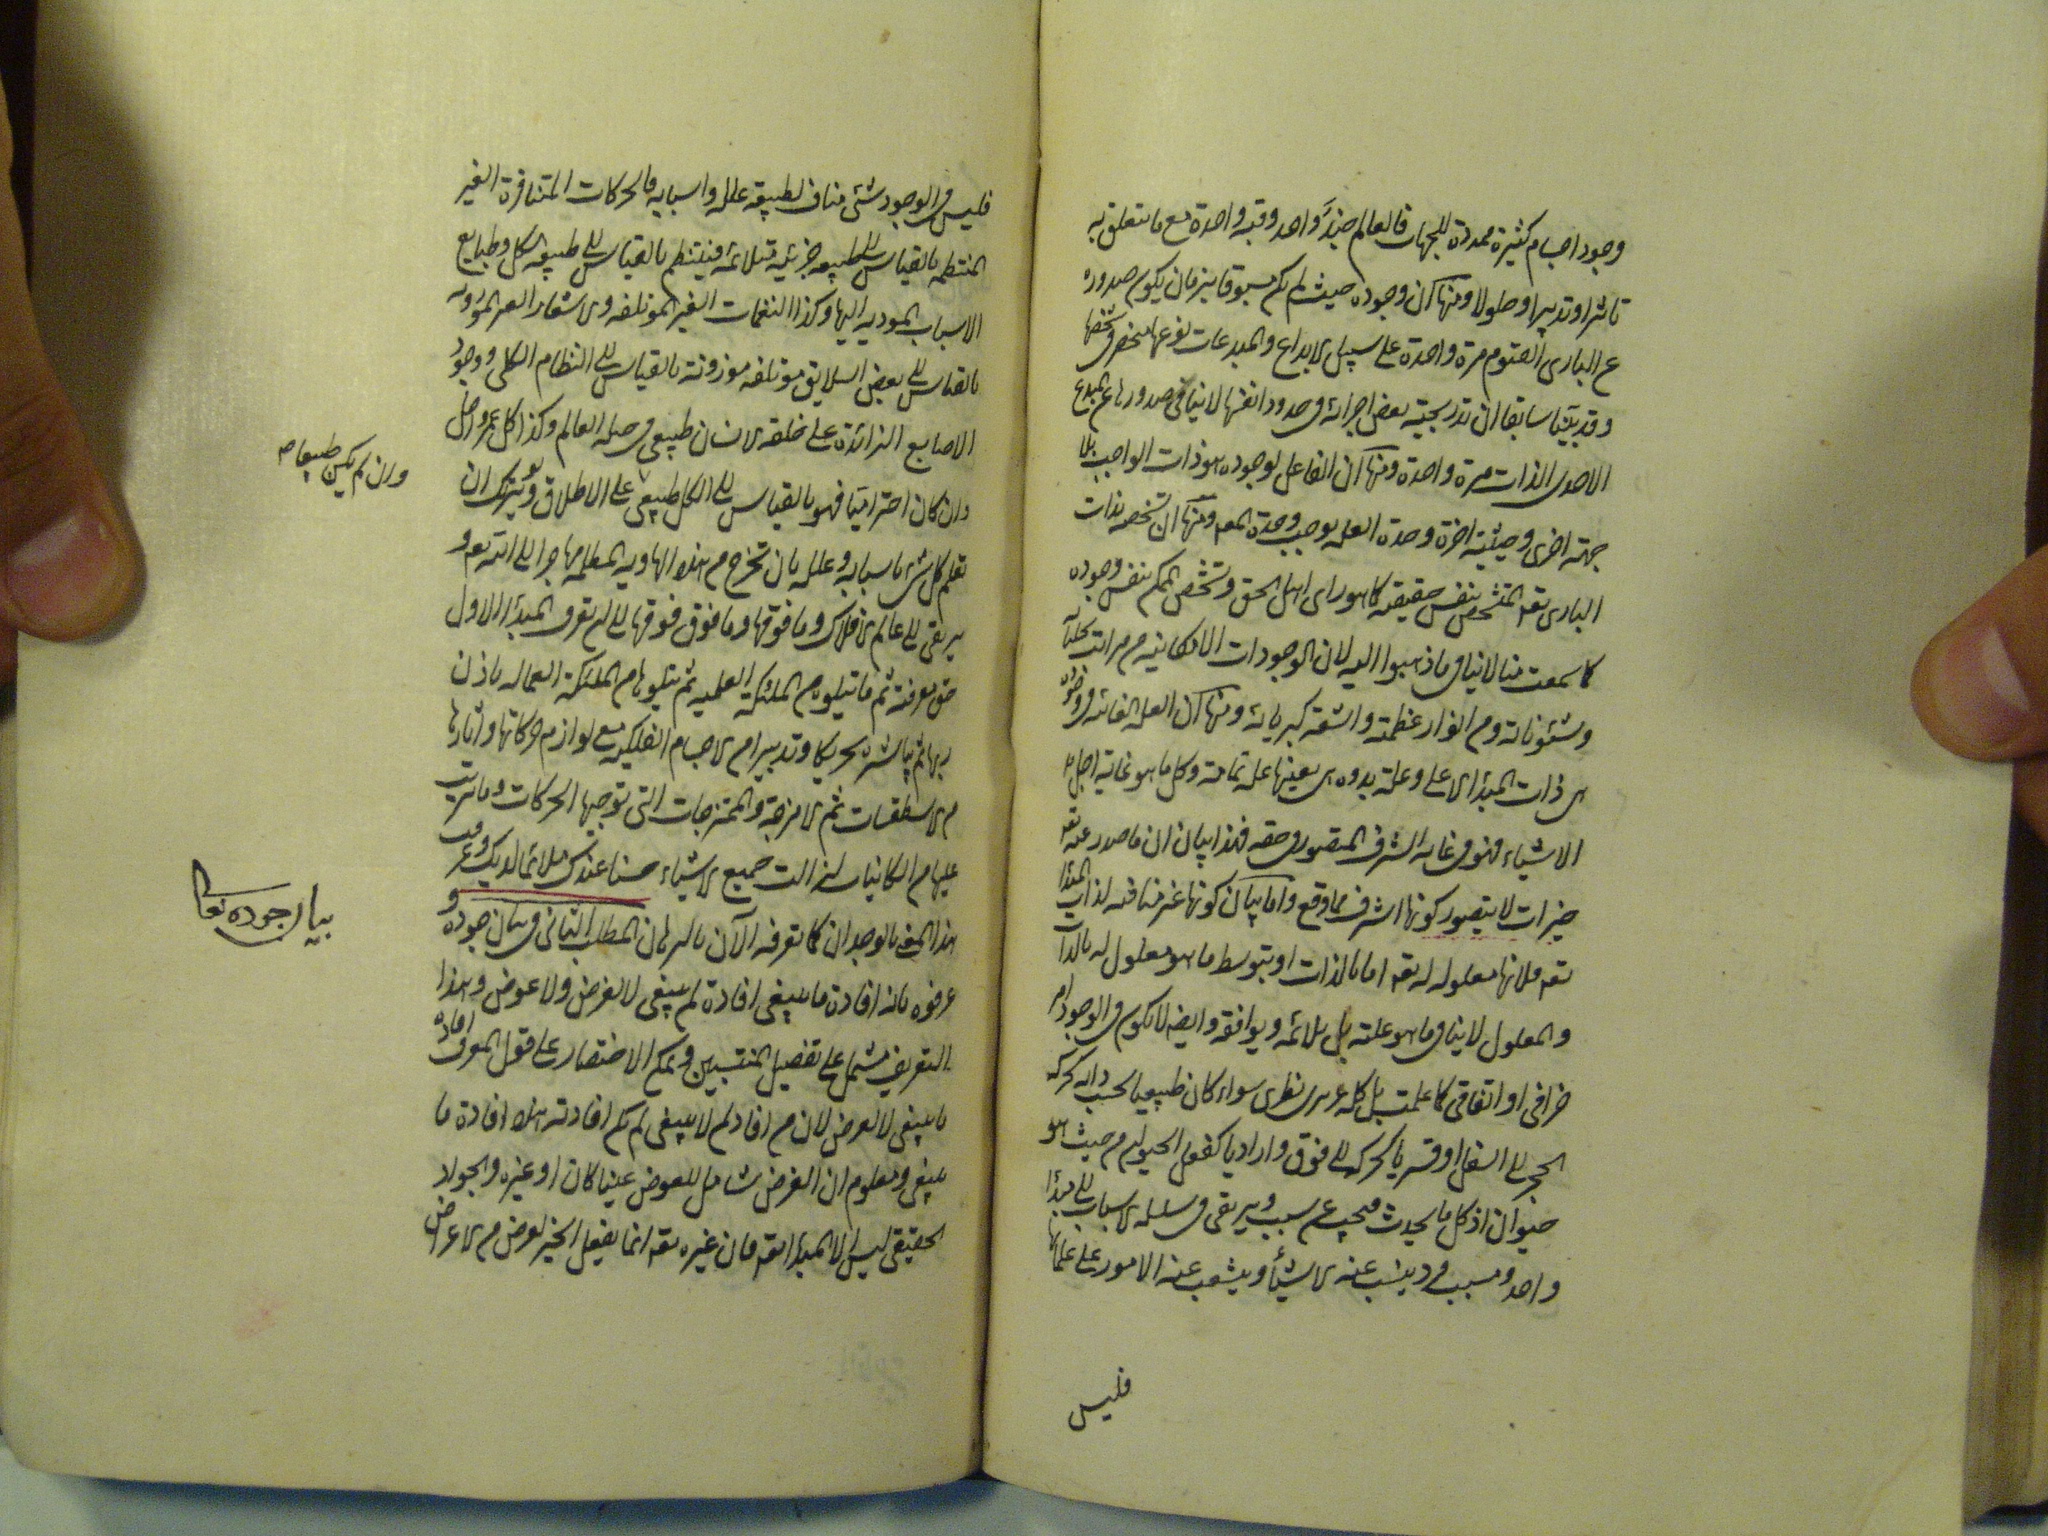 وجود اجسام كثيرة محددة للجهات فالعالم واحد وقبة واحدة مع ما يتعلق به
تاثيرا وتدبيرا وحلولا ومنها ان وجوده حيث لم يكن مسبوقا بزمان يكون صدوره
عن الباري القيوم مرة واحدة على سبيل الابداع والمبدعات نوعها منحصر في شخصها
وقد بيّنا سابقا ان تدريجية بعض اجزائه وحدود انفسها لا ينافي صدورها عن المبدع
الاحدي الذات مرة واحدة ومنها ان الفاعل لوجوده هو ذات الواجب بلا
جهة اخرى وحيثية اخرة وحدة العلة يوجب وحدة المعـ ومنها ان تشخصه بذات
الباري تعـ المتشخص بنفس حقيقته كما هو راي اهل الحق وتشخص الممكن بنفس وجوده
كما سمعت منا لا ينافي ما ذهبوا اليه لان الوجودات الامكانية من مراتب تجلياته
وشئوناته ومن انوار عظمته واشعة كبريائه ومنها ان العلة الغائية في وجوده
هي ذات المبدأ الاعلى وعلة بدوه هي بعينها علة تمامه وكل ما هو غاية اجل
الاشياء فهو في غاية الشرف المتصور في حقه فهذا بيان ان ما صدر عنه تعـ
خيرات لا يتصور كونها اشرف مما وقع واما بيان كونها غير منافية لذات المبدا
تعـ فلانها معلولة له تعـ اما بالذات او بتوسط ما هو معلول له بالذات
والمعلول لا ينافي ما هو علته بل يلائمه ويوافقه وايضا لا يكون في الوجود امر
جزافي او اتفاقي كما علمت بل كله غريزي فطري سواء كان طبيعيا بحسب ذاته كحركة
الحجر الى السفل او قسريا كحركته الى فوق او اراديا كفعل الحيوان من حيث هو
حيوان اذ كل ما يحدث فيجب عن سبب ويرتقي في سلسلة الاسباب الى مبدأ
واحد ومسبب فرد ينبعث عنه الاشياء ويتشعب عنه الامور على علمه بها
فليس
فليس في الوجود شئ مناف لطبيعة علله واسبابه فالحركات المتنافرة الغير
المنتظمة بالقياس الى طبيعة جزئية متلائمة فينتظم بالقياس الى طبيعة الكل وطبايع
الاسباب المودية اليها وكذا النغمات الغير المؤتلفة والاشعار الغير الموزونة
بالقياس الى بعض السلايق مؤتلفة موزونة بالقياس الى النظام الكلي ووجود
الاصابع الزائدة على خلقة الانسان طبيعي في جبلة العالم وكذا كل عمر واجل
وان كان اختراميا فهو بالقياس الى الكل طبيعي على الاطلاق ويتيسر لك ان
وان لم يكن طبيعيا صـ
تعلم كل شئ باسبابه وعلله بان تخرج من هذه الهاوية المظلمة مهاجرا الى الله تعـ و
يرتقي الى عالم الافلاك وما فوقها وما فوق فوقها الى ان تعرف المبدأ الاول
حق معرفته ثم ما يتلوه من الملئكة العلمية ثم يتلوها من الملئكة العمالة باذن
ربها ثم يباشره تحريكا وتدبيرا من الاجسام الفلكية مع لوازم حركاتها واثارها
من الاسطقسات ثم الامزجة والممتزجات التي توجبها الحركات وما يترتب
عليها من الكائنات لنزالت جميع الاشياء حسنا عندك ملائما لديك وعرفت
هذا المعنى بالوجدان كما تعرفه الآن بالبرهان المطلب الثاني في بيان جوده و
بيان جوده تعالى
عرفوه بانه افادة ما ينبغي افادة لم ينبغي لا لغرض ولا عوض وهذا
التعريف مشتمل على تفصيل المنتسبين ويمكن الاختصار على قول المعرف افادة
ما ينبغي لا لغرض لان من افاد لم لا ينبغي لم يكن افادته هذه افادة ما
ينبغي ومعلوم ان الغرض شامل للعوض عينا كان او غيره والجواد
الحقيقي ليس الا المبدا تعـ فان غيره تعـ انما يفعل الخير لغرض من الاغراض